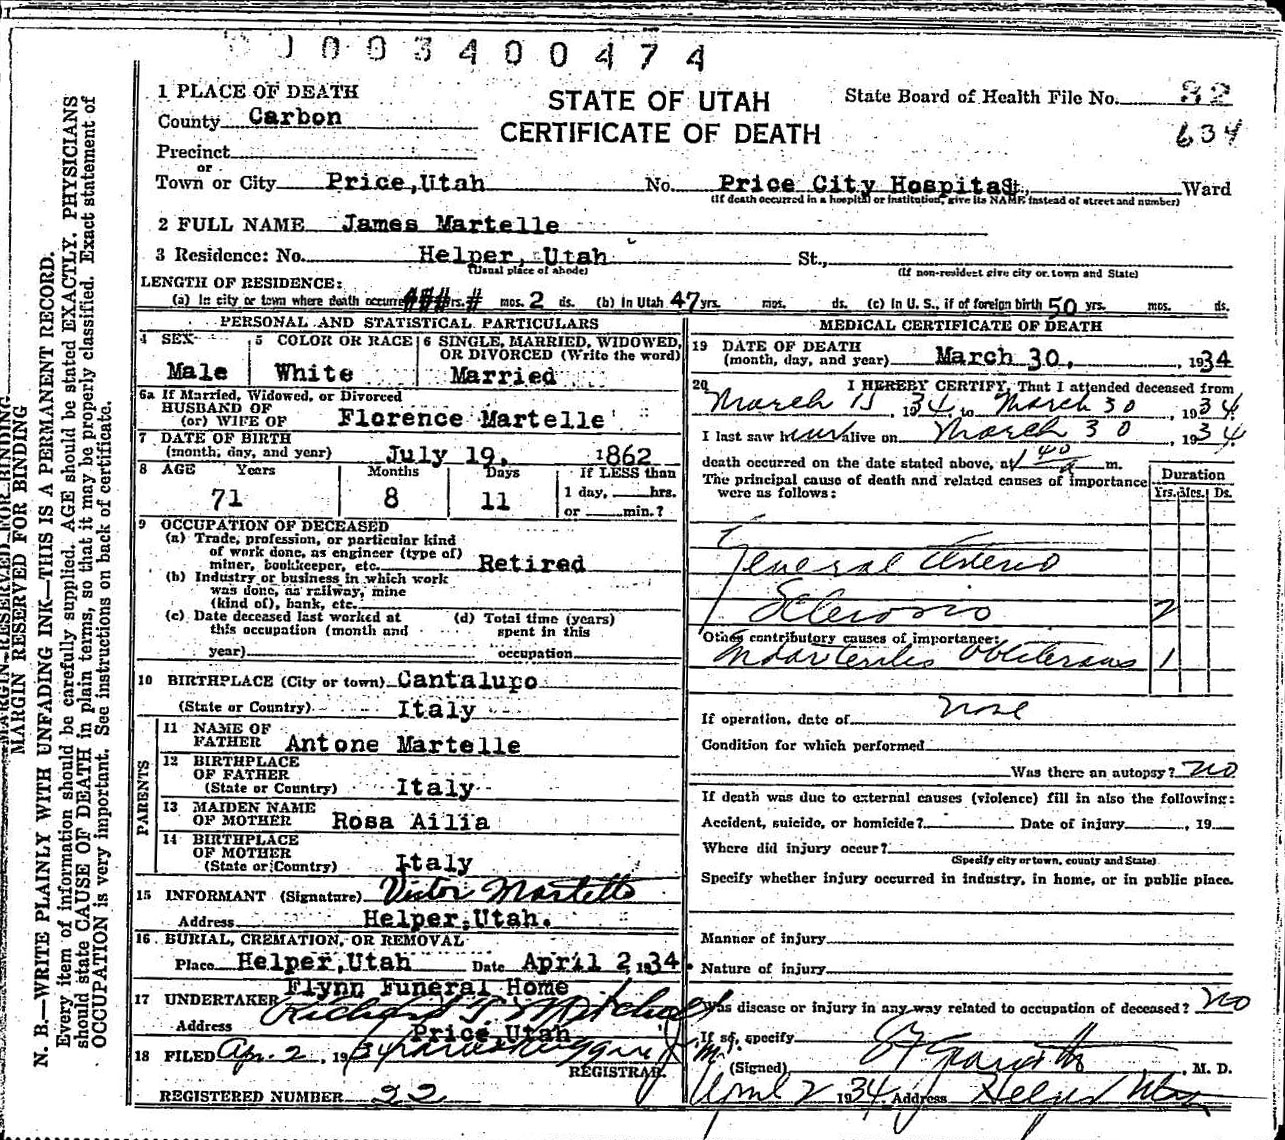 0003400474
1 PLACE OF DEATH
STATE OF UTAH
CERTIFICATE OF DEATH
State Board of Health File No. 82
634
County Carbon
Precinct
or
Town or City Price, Utah No. Price City Hospital St., Ward
(If death occurred in a hospital or institution, give its NAME instead of street and number)
2 FULL NAME James Martelle
3 Residence: No. Helper, Utah St.,
(Usual place of abode) (If non-resident give city or town and State)
LENGTH OF RESIDENCE:
(a) In city or town where death occurre yrs. mos. 2 ds. (b) In Utah 47 yrs. mos. ds. (c) In U. S., if of foreign birth 50 yrs. mos. ds.
PERSONAL AND STATISTICAL PARTICULARS
4 SEX Male
5 COLOR OR RACE White
6 SINGLE, MARRIED, WIDOWED, OR DIVORCED (Write the word) Married
6a If Married, Widowed, or Divorced
HUSBAND OF
(or) WIFE OF Florence Martelle
7 DATE OF BIRTH
(month, day, and year) July 19, 1862
8 AGE Years Months Days If LESS than
71 8 11 1 day, hrs.
or min.?
9 OCCUPATION OF DECEASED
(a) Trade, profession, or particular kind
of work done, as engineer (type of)
miner, bookkeeper, etc. Retired
(b) Industry or business in which work
was done, as railway, mine
(kind of), bank, etc.
(c) Date deceased last worked at
this occupation (month and
year)
(d) Total time (years)
spent in this
occupation
10 BIRTHPLACE (City or town) Cantalupo
(State or Country) Italy
PARENTS
11 NAME OF
FATHER Antone Martelle
12 BIRTHPLACE
OF FATHER
(State or Country) Italy
13 MAIDEN NAME
OF MOTHER Rosa Ailia
14 BIRTHPLACE
OF MOTHER
(State or Country) Italy
15 INFORMANT (Signature) Victor Martello
Address Helper, Utah.
16 BURIAL, CREMATION, OR REMOVAL
Place Helper, Utah Date April 2, 1934.
Flynn Funeral Home
17 UNDERTAKER Richard T. Mitchell
Address Price, Utah
18 FILED Apr. 2, 1934
REGISTRAR.
REGISTERED NUMBER 22
MEDICAL CERTIFICATE OF DEATH
19 DATE OF DEATH
(month, day, and year) March 30, 1934
20 I HEREBY CERTIFY, That I attended deceased from
March 15, 1934, to March 30, 1934
I last saw him alive on March 30, 1934
death occurred on the date stated above, at 1 40 a m.
The principal cause of death and related causes of importance
were as follows:
Duration
Yrs. Mos. Ds.
General Arterio
Sclerosis 2
Other contributory causes of importance:
Endarteritis Obliterans 1
If operation, date of None
Condition for which performed
Was there an autopsy? No
If death was due to external causes (violence) fill in also the following:
Accident, suicide, or homicide? Date of injury , 19
Where did injury occur?
(Specify city or town, county and State)
Specify whether injury occurred in industry, in home, or in public place.
Manner of injury
Nature of injury
Was disease or injury in any way related to occupation of deceased? No
If so, specify
(Signed) , M. D.
April 2 1934 Address Helper Utah
MARGIN RESERVED FOR BINDING
MARGIN RESERVED FOR BINDING
N. B.—WRITE PLAINLY WITH UNFADING INK—THIS IS A PERMANENT RECORD.
Every item of information should be carefully supplied. AGE should be stated EXACTLY. PHYSICIANS
should state CAUSE OF DEATH in plain terms, so that it may be properly classified. Exact statement of
OCCUPATION is very important. See instructions on back of certificate.